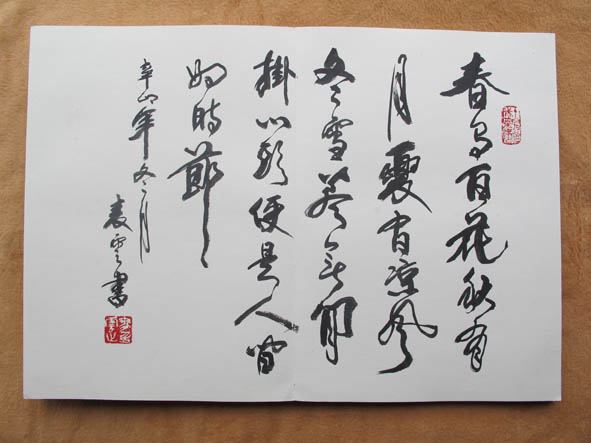 春有百花秋有
月夏有凉风
冬雪若无閒
掛心頭便是人間
好時節
辛卯年冬月
雲書